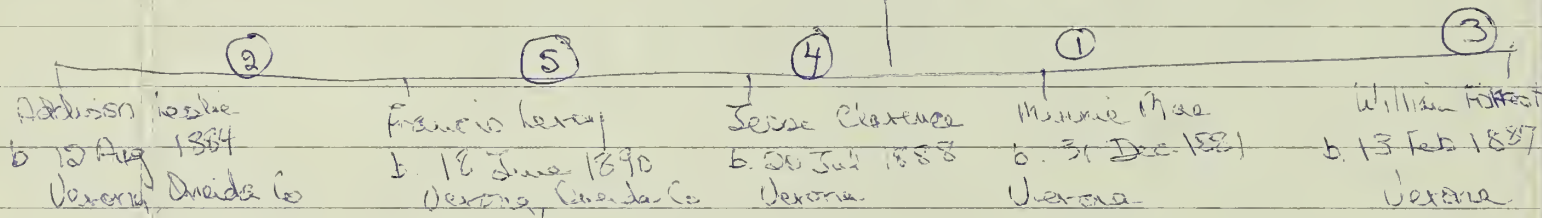 ② ⑤ ④ ① ③
Addison Leslie
b 12 Aug 1884
Verona, Oneida Co
Francis Leroy
b. 18 June 1890
Verona, Oneida Co
Jesse Clarence
b. 20 Jul 1888
Verona
Minnie Mae
b. 31 Dec. 1881
Verona
William
b. 13 Feb 1887
Verona